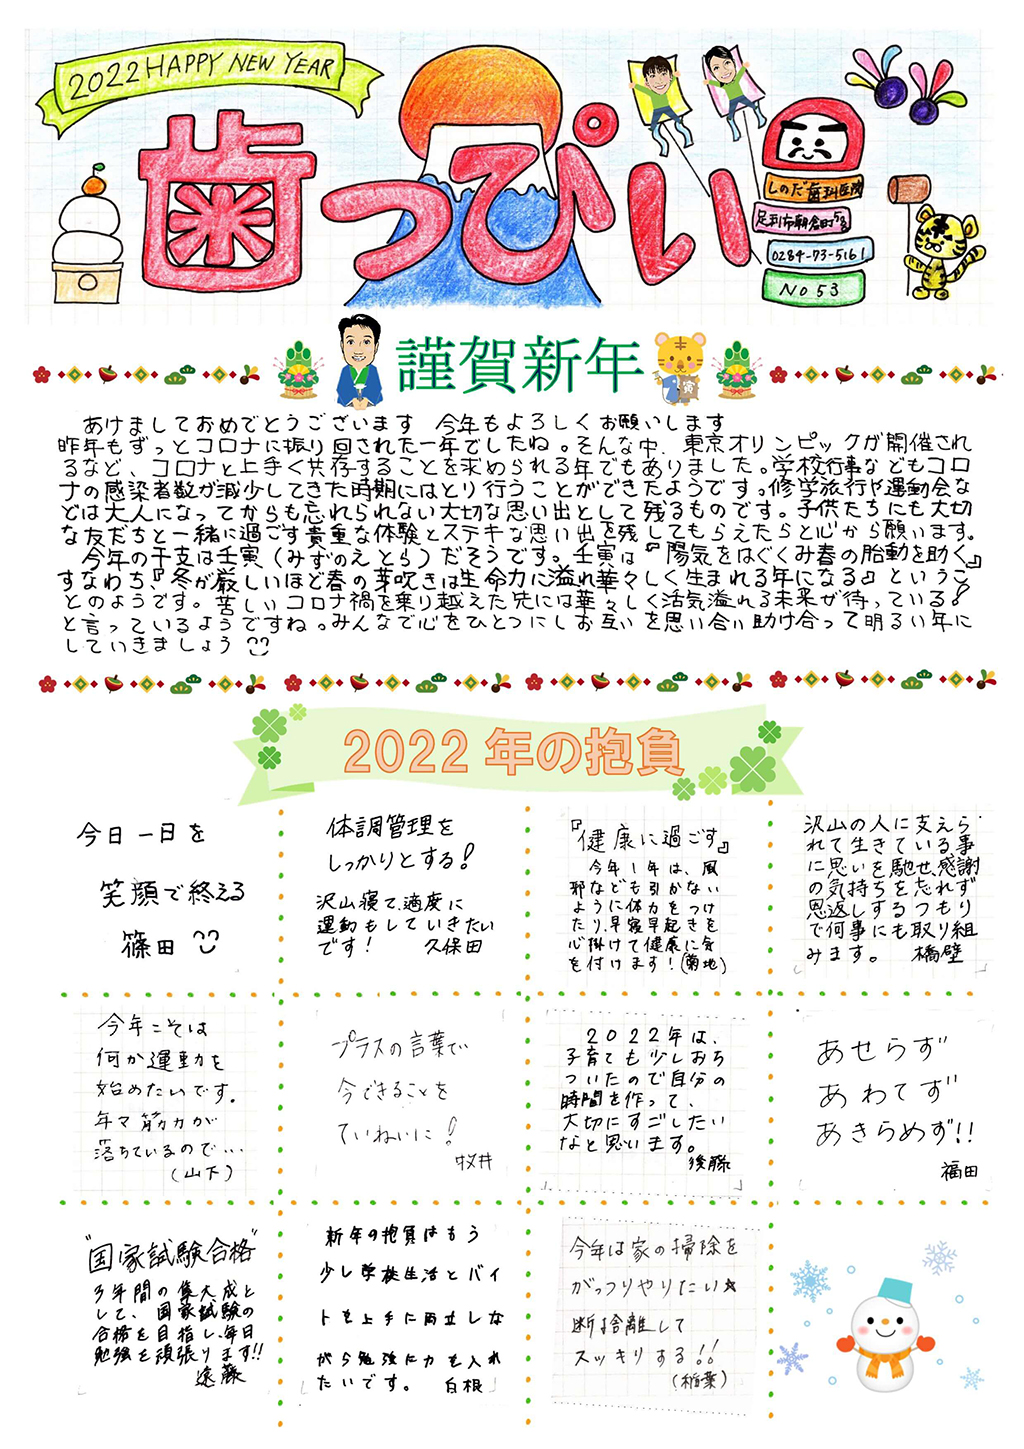 2022 HAPPY NEW YEAR
歯っぴい
しのだ歯科医院
足利市朝倉町58
0284-73-5161
No 53
謹賀新年
寅
あけましておめでとうございます 今年もよろしくお願いします
昨年もずっとコロナに振り回された一年でしたね。そんな中、東京オリンピックが開催され
るなど、コロナと上手く共存することを求められる年でもありました。学校行事などもコロ
ナの感染者数が減少してきた時期にはとり行うことができたようです。修学旅行や運動会な
どは大人になってからも忘れられない大切な思い出として残るものです。子供たちにも大切
な友だちと一緒に過ごす貴重な体験とステキな思い出を残してもらえたらと心から願います。
今年の干支は壬寅(みずのえとら)だそうです。壬寅は『陽気をはぐくみ春の胎動を助く』
すなわち、『冬が厳しいほど春の芽吹きは生命力に溢れ華々しく生まれる年になる』というこ
とのようです。苦しいコロナ禍を乗り越えた先には華々しく活気溢れる未来が待っている!
と言っているようですね。みんなで心をひとつにしお互いを思い合い助け合って明るい年に
していきましょう
2022年の抱負
今日一日を
笑顔で終える
篠田
体調管理を
しっかりとする!
沢山寝て、適度に
運動もしていきたい
です! 久保田
『健康に過ごす』
今年1年は、風
邪なども引かない
ように体力をつけ
たり、早寝早起きを
心掛けて健康に気
を付けます!(菊地)
沢山の人に支えら
れて生きている事
に思いを馳せ、感謝
の気持ちを忘れず
恩返しするつもり
で何事にも取り組
みます。 橋壁
今年こそは
何か運動を
始めたいです。
年々筋力が
落ちているので…
(山下)
プラスの言葉で
今できることを
ていねいに!
桜井
2022年は、
子育ても少しおち
ついたので自分の
時間を作って、
大切にすごしたい
なと思います。
後藤
あせらず
あわてず
あきらめず!!
福田
"国家試験合格"
3年間の集大成と
して、国家試験の
合格を目指し、毎日
勉強を頑張ります!!
遠藤
新年の抱負はもう
少し学校生活とバイ
トを上手に両立しな
がら勉強に力を入れ
たいです。 白根
今年は家の掃除を
がっつりやりたい☆
断捨離して
スッキリする!!
(稲葉)